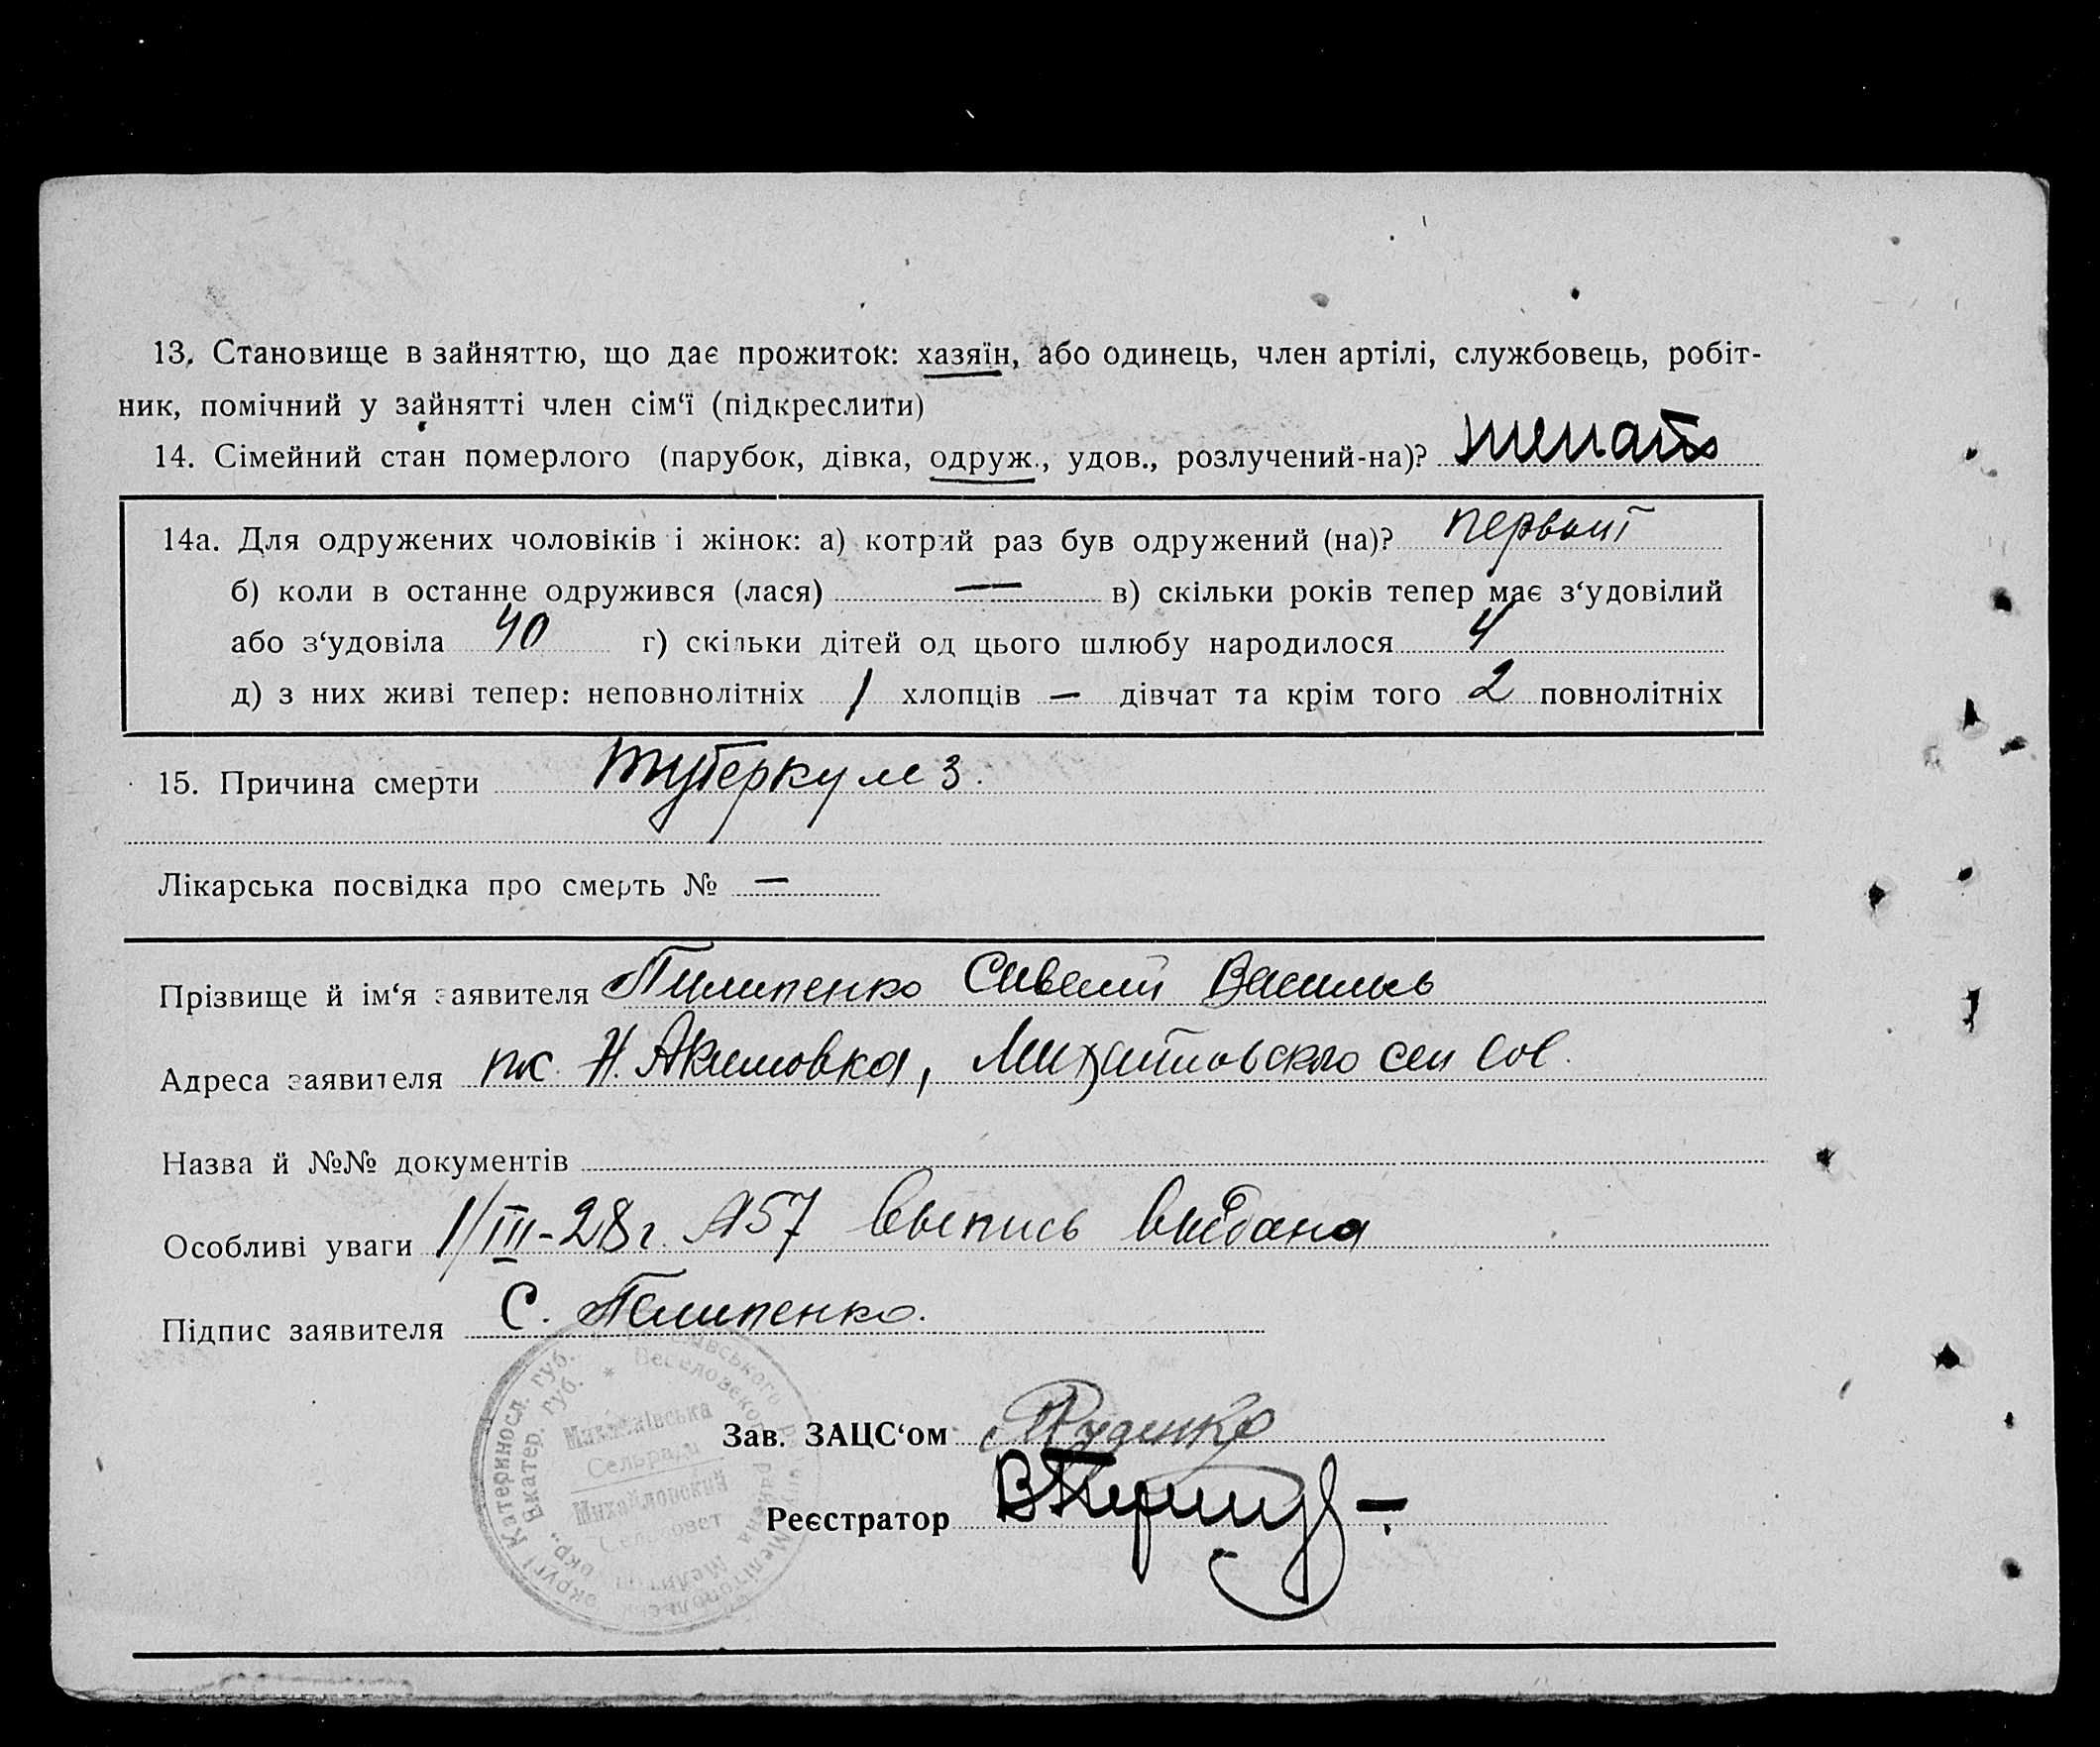 13. Становище в зайняттю, що дає прожиток: хазяїн, або одинець, член артілі, службовець, робіт-
ник, помічний у зайнятті член сім‘ї (підкреслити)
14. Сімейний стан померлого (парубок, дівка, одруж., удов., розлучений-на)? женатъ
14а. Для одружених чоловіків і жінок: а) котрий раз був одружений (на)? первый
б) коли в останнє одружився (лася) — в) скільки років тепер має з‘удовілий
або з‘удовіла 40 г) скільки дітей од цього шлюбу народилося 4
д) з них живі тепер: неповнолітніх 1 хлопців — дівчат та крім того 2 повнолітніх
15. Причина смерти туберкулез.
Лікарська посвідка про смерть № —
Прізвище й ім‘я заявителя Пилипенко Савелий Васильев
Адреса заявителя Н. Акимовка, Михайловского сел сов.
Назва й №№ документів
Особливі уваги 1/III-28г. №57 Выпись выдана
Підпис заявителя С. Пелипенко.
Зав. ЗАЦС‘ом Руденко
Реєстратор
Катериносл. губ.
Екатер. губ. * Веселовского района Мелитоп. окр.
Михайлівська
Сельрада
Михайловский
Сельсовет